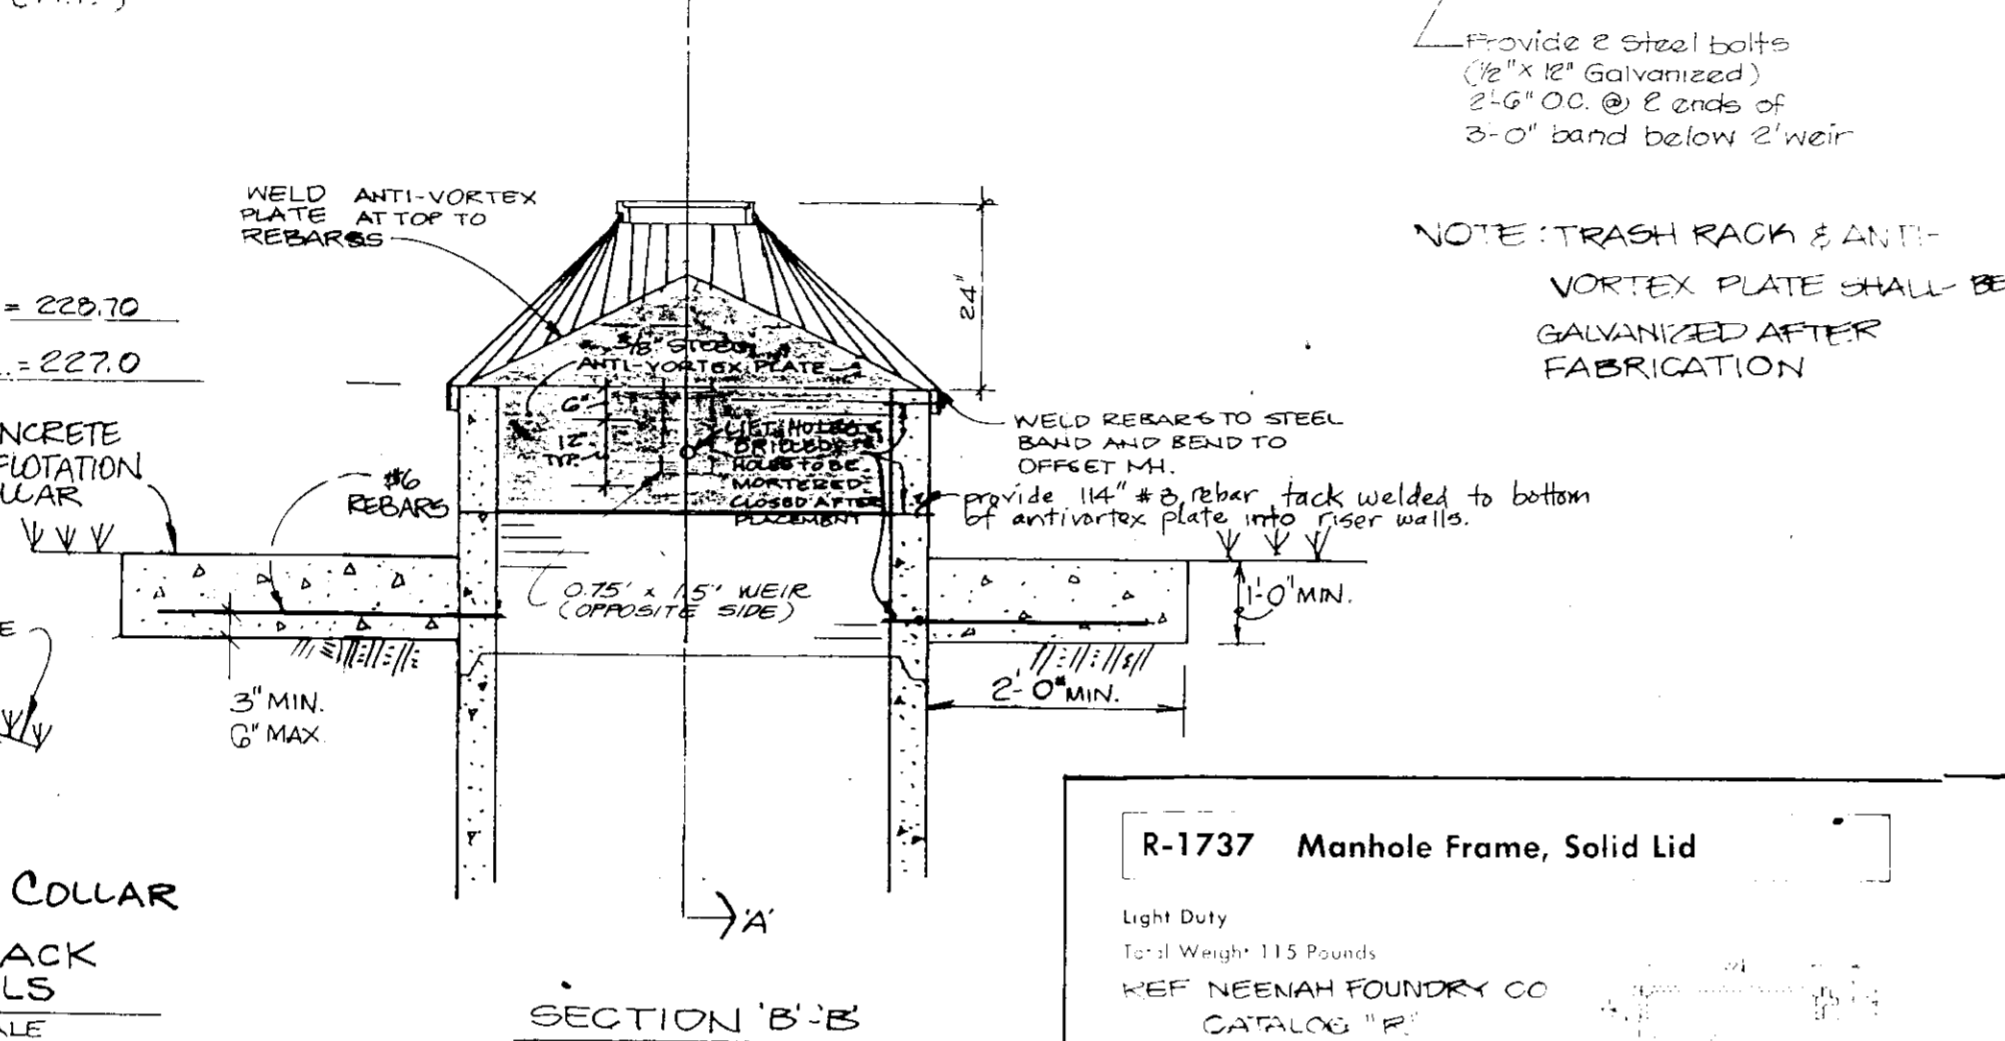 Provide 2 steel bolts
(1/2" x 12" Galvanized)
2'-6" O.C. @ 2 ends of
3'-0" band below 2' weir
WELD ANTI-VORTEX
PLATE AT TOP TO
REBARS
NOTE: TRASH RACK & ANTI-
VORTEX PLATE SHALL BE
GALVANIZED AFTER
FABRICATION
24"
= 228.70
= 227.0
3/8" STEEL
ANTI-VORTEX PLATE
6"
12"
TYP.
LIFT HOLES
DRILLED
HOLES TO BE
MORTERED
CLOSED AFTER
PLACEMENT
WELD REBARS TO STEEL
BAND AND BEND TO
OFFSET MH.
provide 114" #8 rebar tack welded to bottom
of antivortex plate into riser walls.
NCRETE
FLOTATION
LLAR
#6
REBARS
0.75' x 1.5' WEIR
(OPPOSITE SIDE)
1'-0" MIN.
E
2'-0" MIN.
3" MIN.
6" MAX.
COLLAR
ACK
LS
ALE
'A'
SECTION 'B'-'B'
R-1737 Manhole Frame, Solid Lid
Light Duty
Total Weight 115 Pounds
REF NEENAH FOUNDRY CO
CATALOG "R"